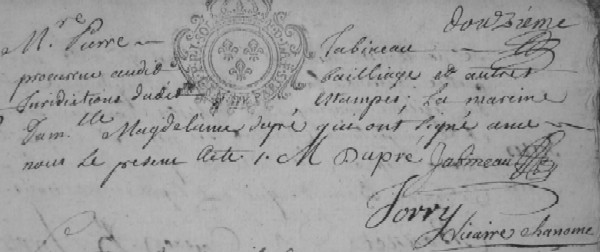 douzième
Mre Pierre — Jabineau —
procureur audit bailliage et autres
Juridictions dudit Estampes, La marenne
Damlle Magdelienne dupré qui ont signé avec
nous Le présent Acte. M Dupré Jabineau
Vicaire Chanoine